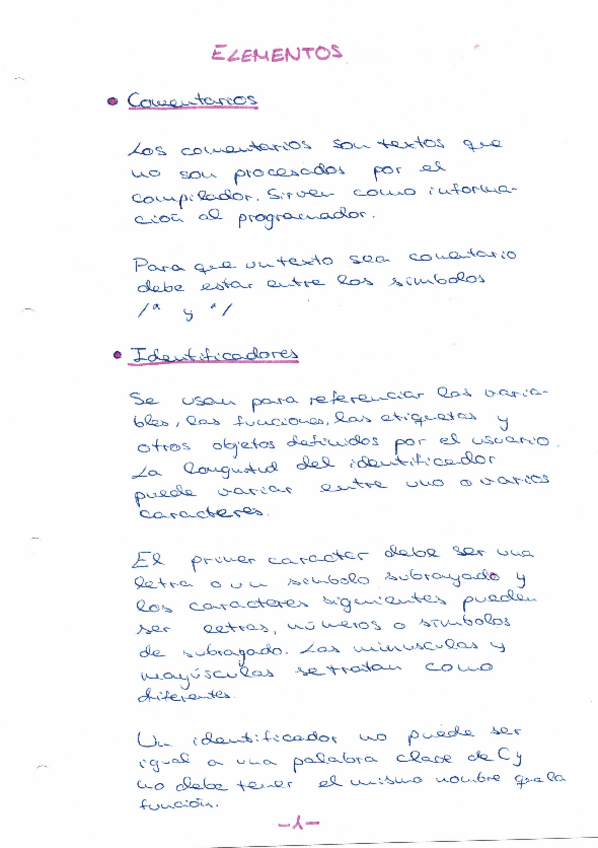 ELEMENTOS
• Comentarios
Los comentarios son textos que
no son procesados por el
compilador. Sirven como informa-
ción al programador.
Para que un texto sea comentario
debe estar entre los simbolos
/* y */
• Identificadores
Se usan para referenciar las varia-
bles, las funciones, las etiquetas y
otros objetos definidos por el usuario.
La longitud del identificador
puede variar entre uno o varios
caracteres.
El primer caracter debe ser una
letra o un simbolo subrayado y
los caracteres siguientes pueden
ser letras, números o simbolos
de subragado. Las minusculas y
mayúsculas se tratan como
diferentes.
Un identificador no puede ser
igual a una palabra clave de C y
no debe tener el mismo nombre que la
función.
-1-